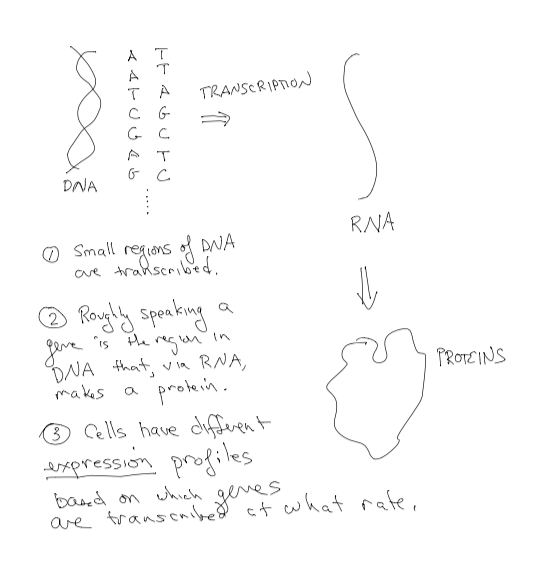 A T
A T
T A
C G
G C
A T
G C
DNA
TRANSCRIPTION
⇒
RNA
⇓
PROTEINS
① Small regions of DNA
are transcribed.
② Roughly speaking a
gene is the region in
DNA that, via RNA,
makes a protein.
③ Cells have different
expression profiles
based on which genes
are transcribed at what rate.